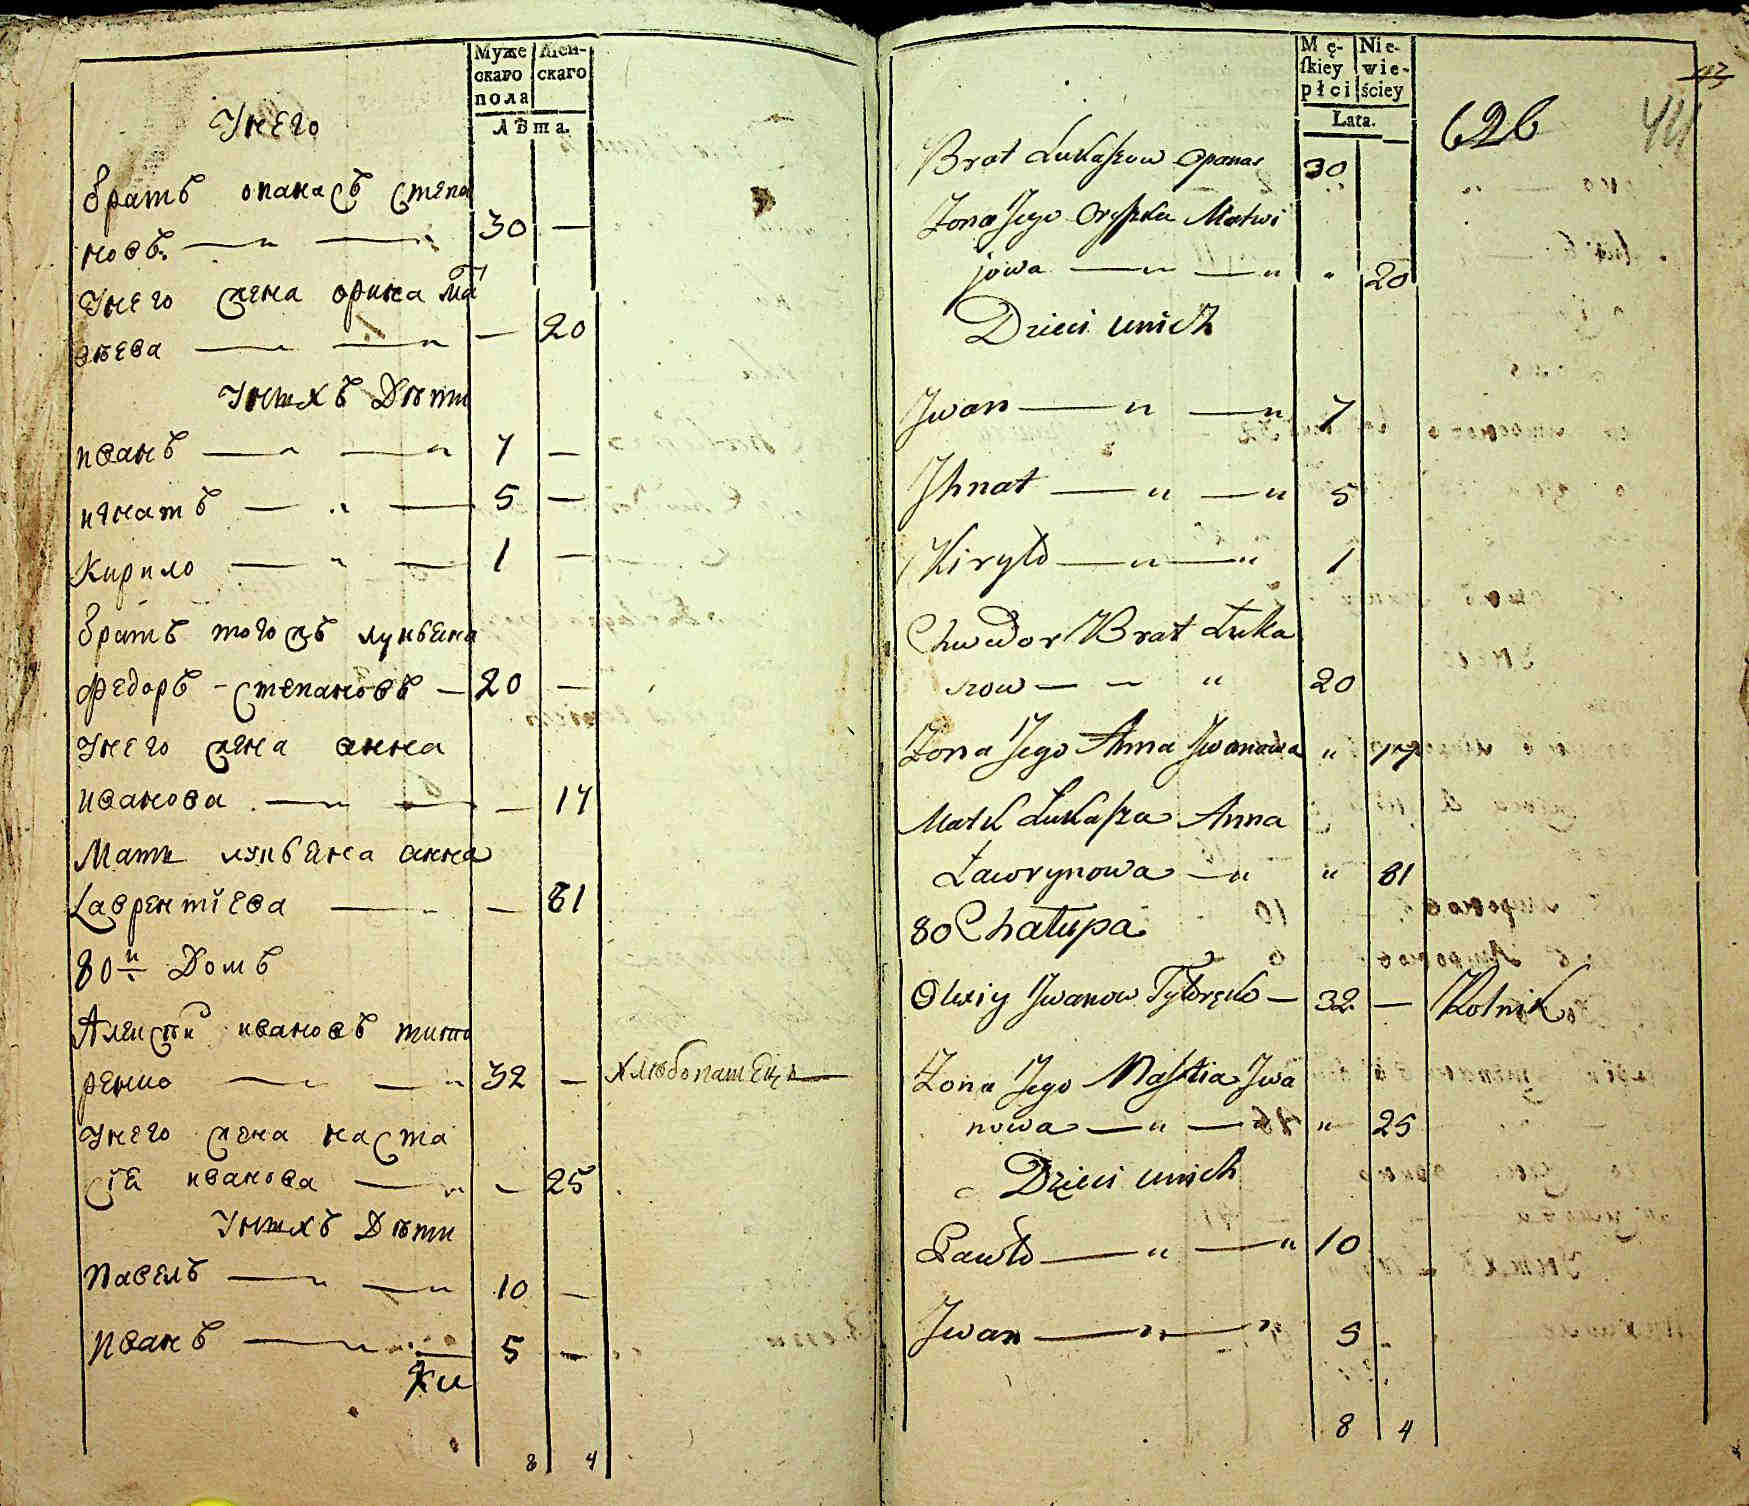 Муже Жен-
скаго скаго
пола
Лѣта.
Унего
братъ опанасъ степа
новъ 30 —
Унего жена орина ма
ѳѣева — 20
Унихъ Дѣти
иванъ 7 —
игнатъ 5 —
Кирило 1 —
братъ тогожъ лукьяна
Федоръ степановъ 20 —
Унего жена анна
иванова — 17
Мати лукьяна анна
Лаврентіева — 81
80й Домъ
Алексѣй ивановъ тито
ренко 32 — хлѣбопашецъ
Унего жена наста
сія иванова — 25
Унихъ Дѣти
Павелъ 10 —
Иванъ 5 —
8 4
Mę- Nie-
ſkiey wie-
płci ściey
Lata.
43
626 44
Brat Łukaſzow Opanas 30
Zona Jego Oryſzka Matwi
jowa „ 20
Dzieci unich
Jwan 7
Jhnat 5
Kiryło 1
Chwedor Brat Łuka
szow 20
Zona Jego Anna Jwanowa „ 17
Matk Łukaſza Anna
Ławrynowa „ 81
80 Chałupa
Olexiy Jwanow Tytoręko — 32 — Rolnik
Zona Jego Naſtia Jwa
nowa „ 25
Dzieci unich
Pawło 10
Jwan 5
8 4